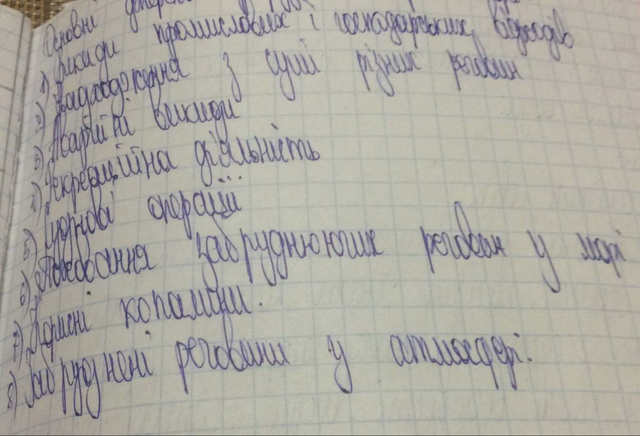 Основні джерела
1) Викиди промислових і господарських відходів
2) Надходження з суші різних речовин
3) Аварійні викиди
4) Рекреаційна діяльність
5) Морські операції
6) Поховання забруднюючих речовин у морі
7) Корисні копалини.
8) Забруднені речовини у атмосфері.